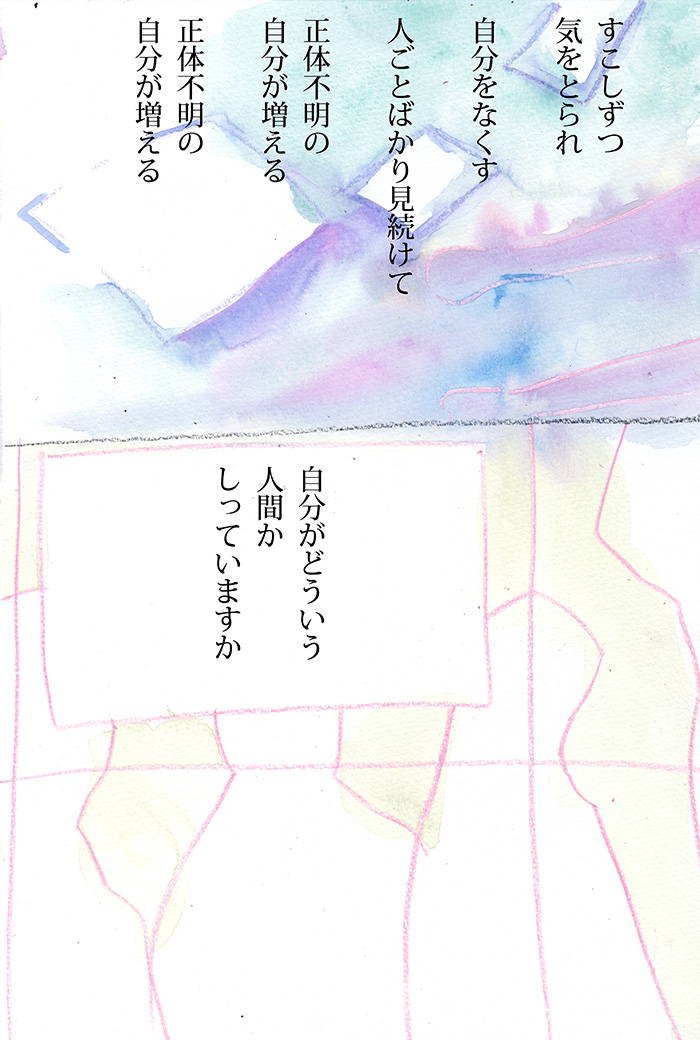 すこしずつ
気をとられ
自分をなくす
人ごとばかり見続けて
正体不明の
自分が増える
正体不明の
自分が増える
自分がどういう
人間か
しっていますか